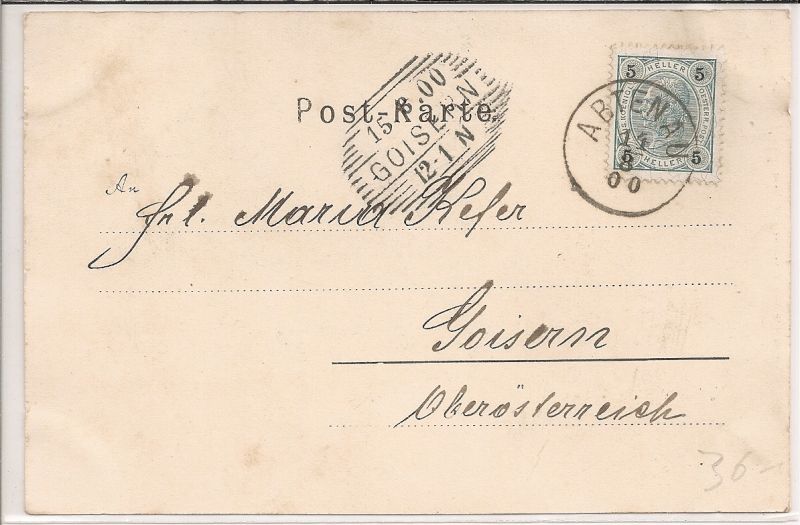 Post-Karte.
15.8.00
GOISERN
12-1 N
5 HELLER 5
5 HELLER 5
ABTENAU
14
8
00
An
Frl. Maria Kefer
Goisern
Oberösterreich
36-